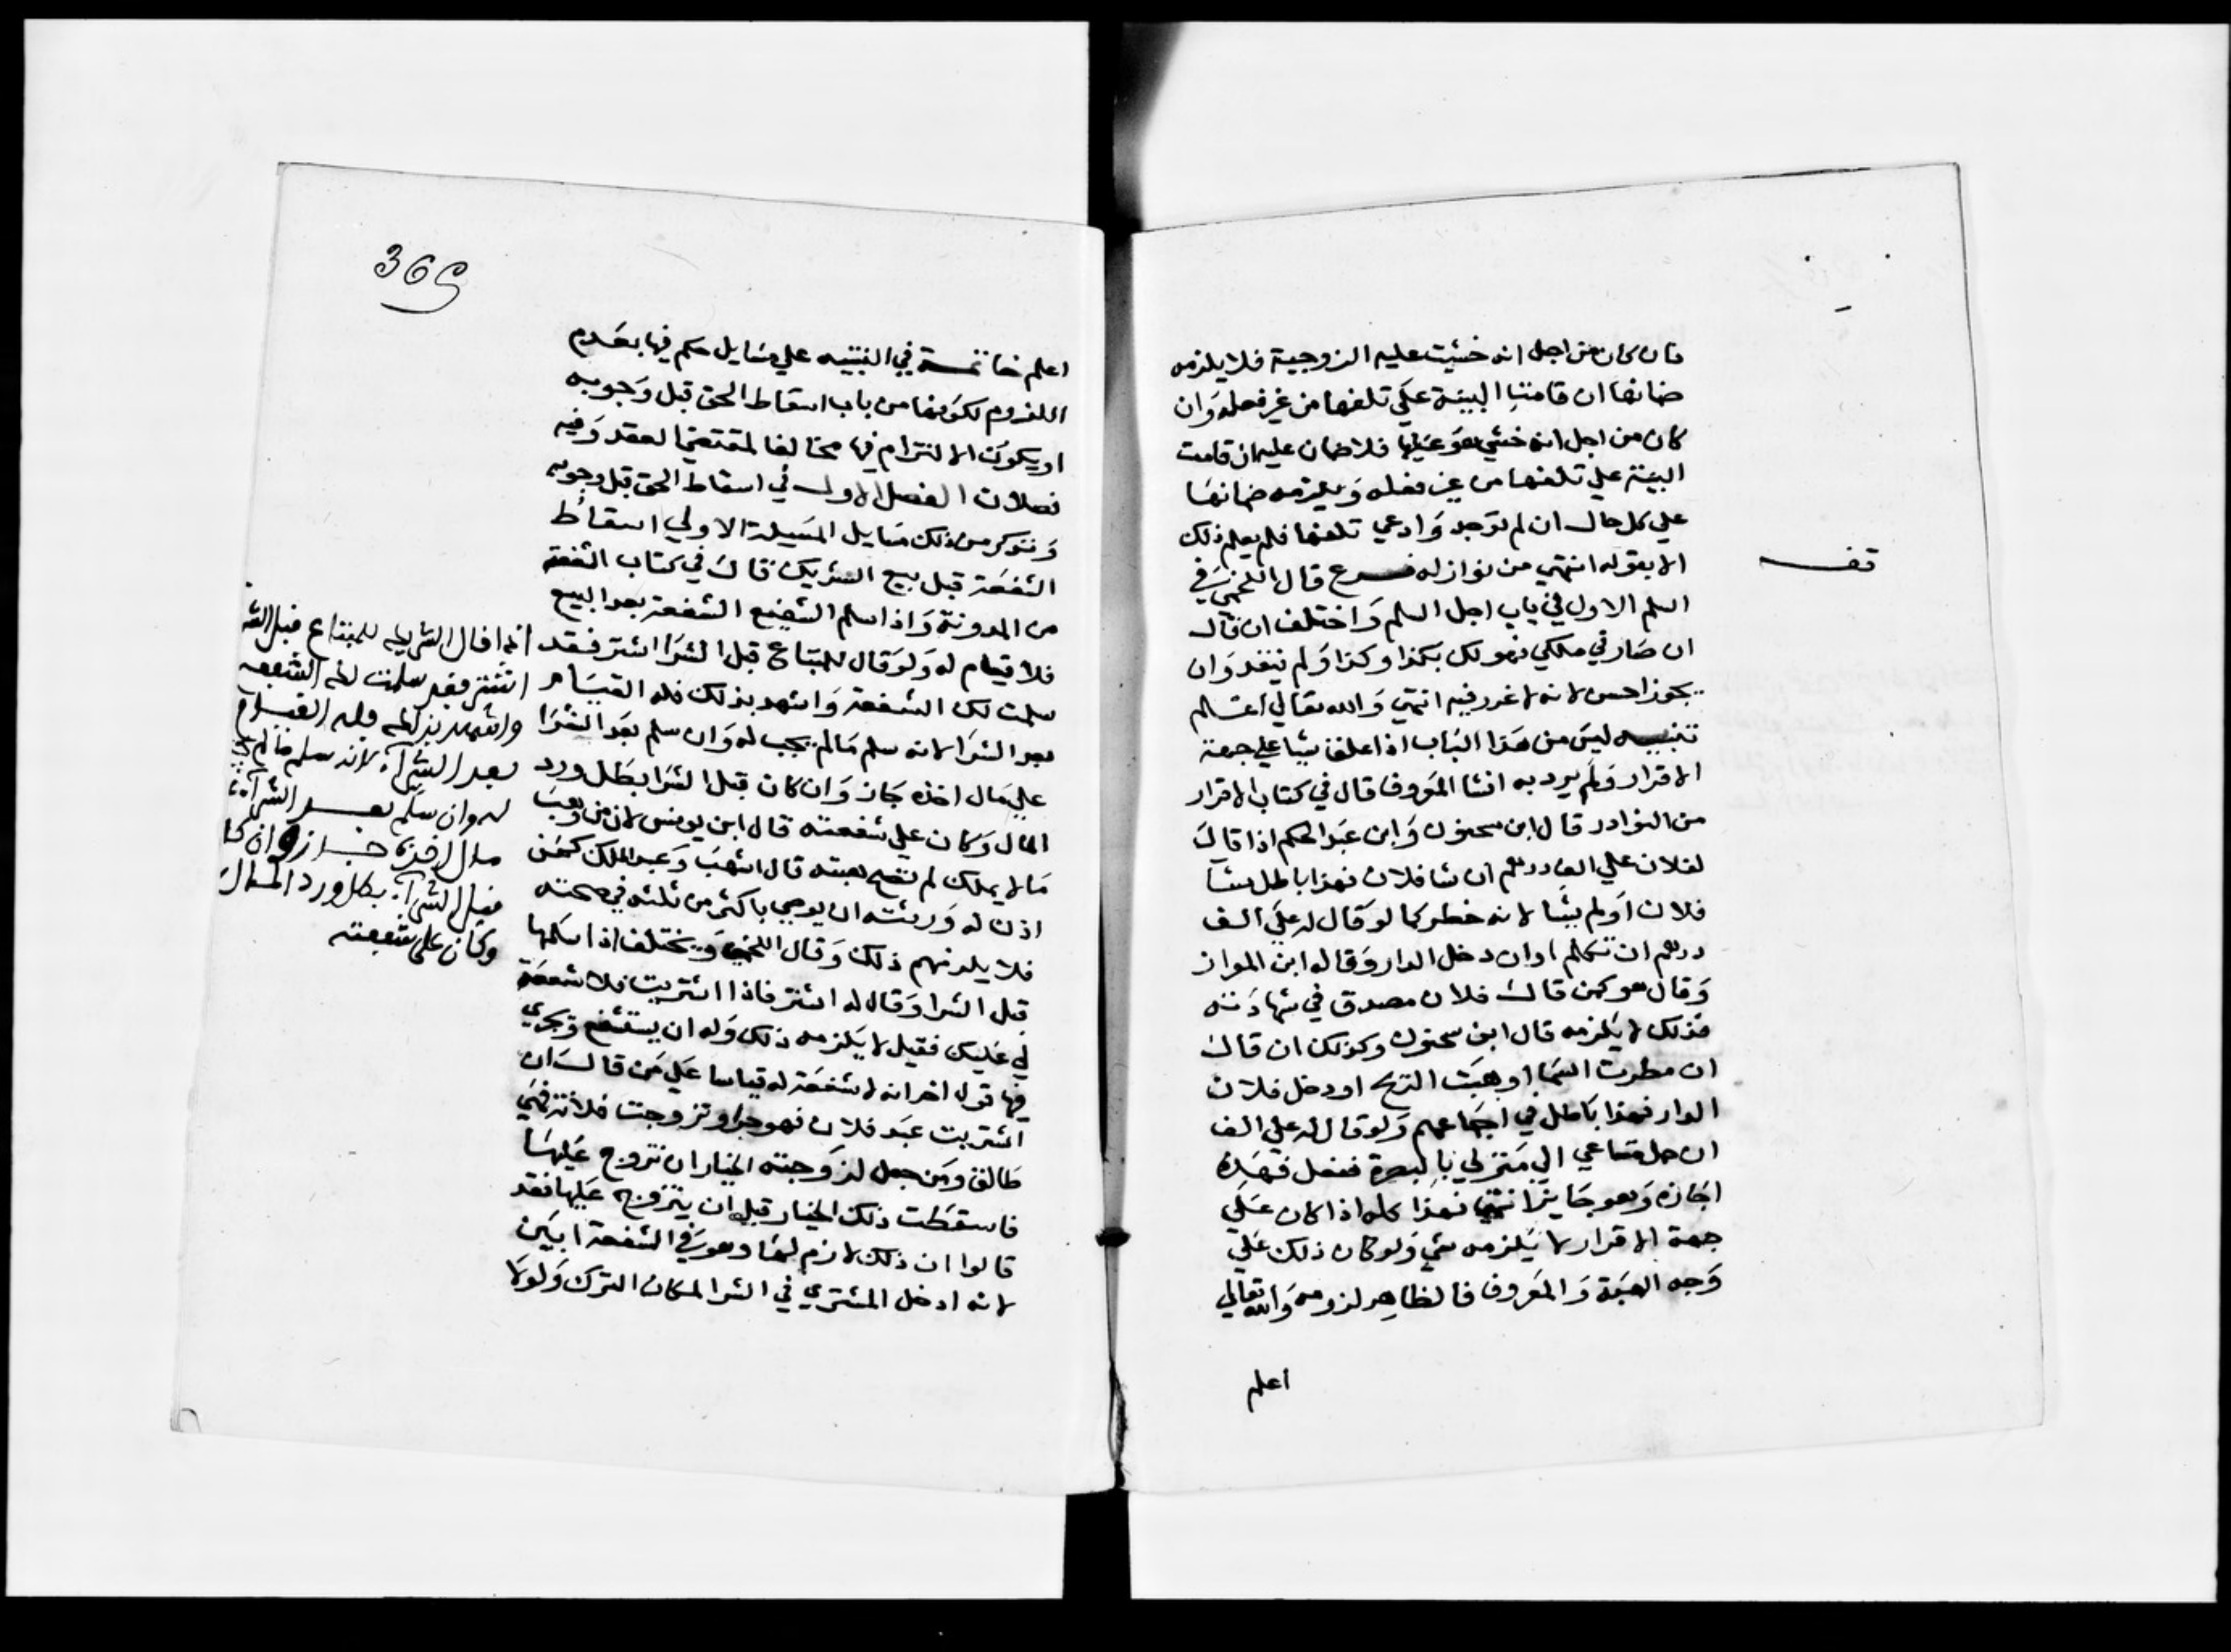 فان كان من اجل انه خشيت عليه الزوجية فلا يلزمه
ضمانها ان قامت البينة على تلفها من غير فعله وان
كان من اجل انه خشي هو عليها فلا ضمان عليه ان قامت
البينة علي تلفها من غير فعله ويلزمه ضمانها
علي كل حال ان لم توجد وادعي تلفها فلم يعلم ذلك
الا بقوله انتهي من نوازله فرع قال اللخمي في
السلم الاول في باب اجل السلم واختلف ان قال
ان صار في ملكي فهو لك بكذا وكذا ولم ينقد وان
يجوز احسن لانه لا غرر فيه انتهي والله تعالي اعلم
تنبيه ليس من هذا الباب اذا علق شيا علي جهة
الاقرار ولم يرد به انشا المعروف قال في كتاب الاقرار
من النوادر قال ابن سحنون وابن عبد الحكم اذا قال
لفلان علي الف درهم ان شا فلان فهذا باطل شا
فلان او لم يشا لانه خطر كما لو قال له علي الف
درهم ان تكلم او ان دخل الدار وقاله ابن المواز
وقال هو كمن قال فلان مصدق في شهادته
فذلك لا يلزمه قال ابن سحنون وكذلك ان قال
ان مطرت السما او هبت الريح او دخل فلان
الدار فهذا باطل في اجماعهم ولو قال له علي الف
ان حمل متاعي الي منزلي بالبصرة ففعل فهذه
اجازه وهو جايز انتهي فهذا كله اذا كان علي
جهة الاقرار لا يلزمه شي ولو كان ذلك علي
وجه الهبة والمعروف فالظاهر لزومه والله تعالي
اعلم
قف
365
اعلم خاتمة في التنبيه علي مسايل حكم فيها بعدم
اللزوم لكونها من باب اسقاط الحق قبل وجوبه
او يكون الالتزام فيها مخالفا لمقتضي العقد وفيه
فصلان الفصل الاول في اسقاط الحق قبل وجوبه
ونذكر من ذلك مسايل المسيلة الاولي اسقاط
الشفعة قبل بيع الشريك قال في كتاب الشفعة
من المدونة واذا سلم الشفيع الشفعة بعد البيع
فلا قيام له ولو قال للمبتاع قبل الشرا اشتر فقد
سلمت لك الشفعة واشهد بذلك فله القيام
بعد الشرا لانه سلم ما لم يجب له وان سلم بعد الشرا
علي مال اخذه جاز وان كان قبل الشرا بطل ورد
المال وكان علي شفعته قال ابن يونس لان من وهب
ما لا يملك لم تصح هبته قال اشهب وعبد الملك كمن
اذن له ورثته ان يوصي باكثر من ثلثه في صحته
فلا يلزمهم ذلك وقال اللخمي ويختلف اذا اسلمها
قبل الشرا وقال له اشتر فاذا اشتريت فلا شفعة
لي عليك فقيل لا يلزمه ذلك وله ان يستشفع ويجري
فيها قول اخر انه لا شفعة له قياسا علي من قال ان
اشتريت عبد فلان فهو حر او تزوجت فلانة فهي
طالق ومن جعل لزوجته الخيار ان تزوج عليها
فاسقطت ذلك الخيار قبل ان يتزوج عليها فقد
قالوا ان ذلك لازم لها وهو في الشفعة ابين
لانه ادخل المشتري في الشرا لمكان الترك ولولا
انه اذا قال الشريك للمبتاع قبل الشر
اشتر فقد سلمت لك الشفعة
واشهد بذلك فله القيام
بعد الشراء لانه سلم ما لم يجب
له وان سلم بعد الشراء على
مال اخذه جاز وان كا
قبل الشراء بطل ورد المال
وكان على شفعته